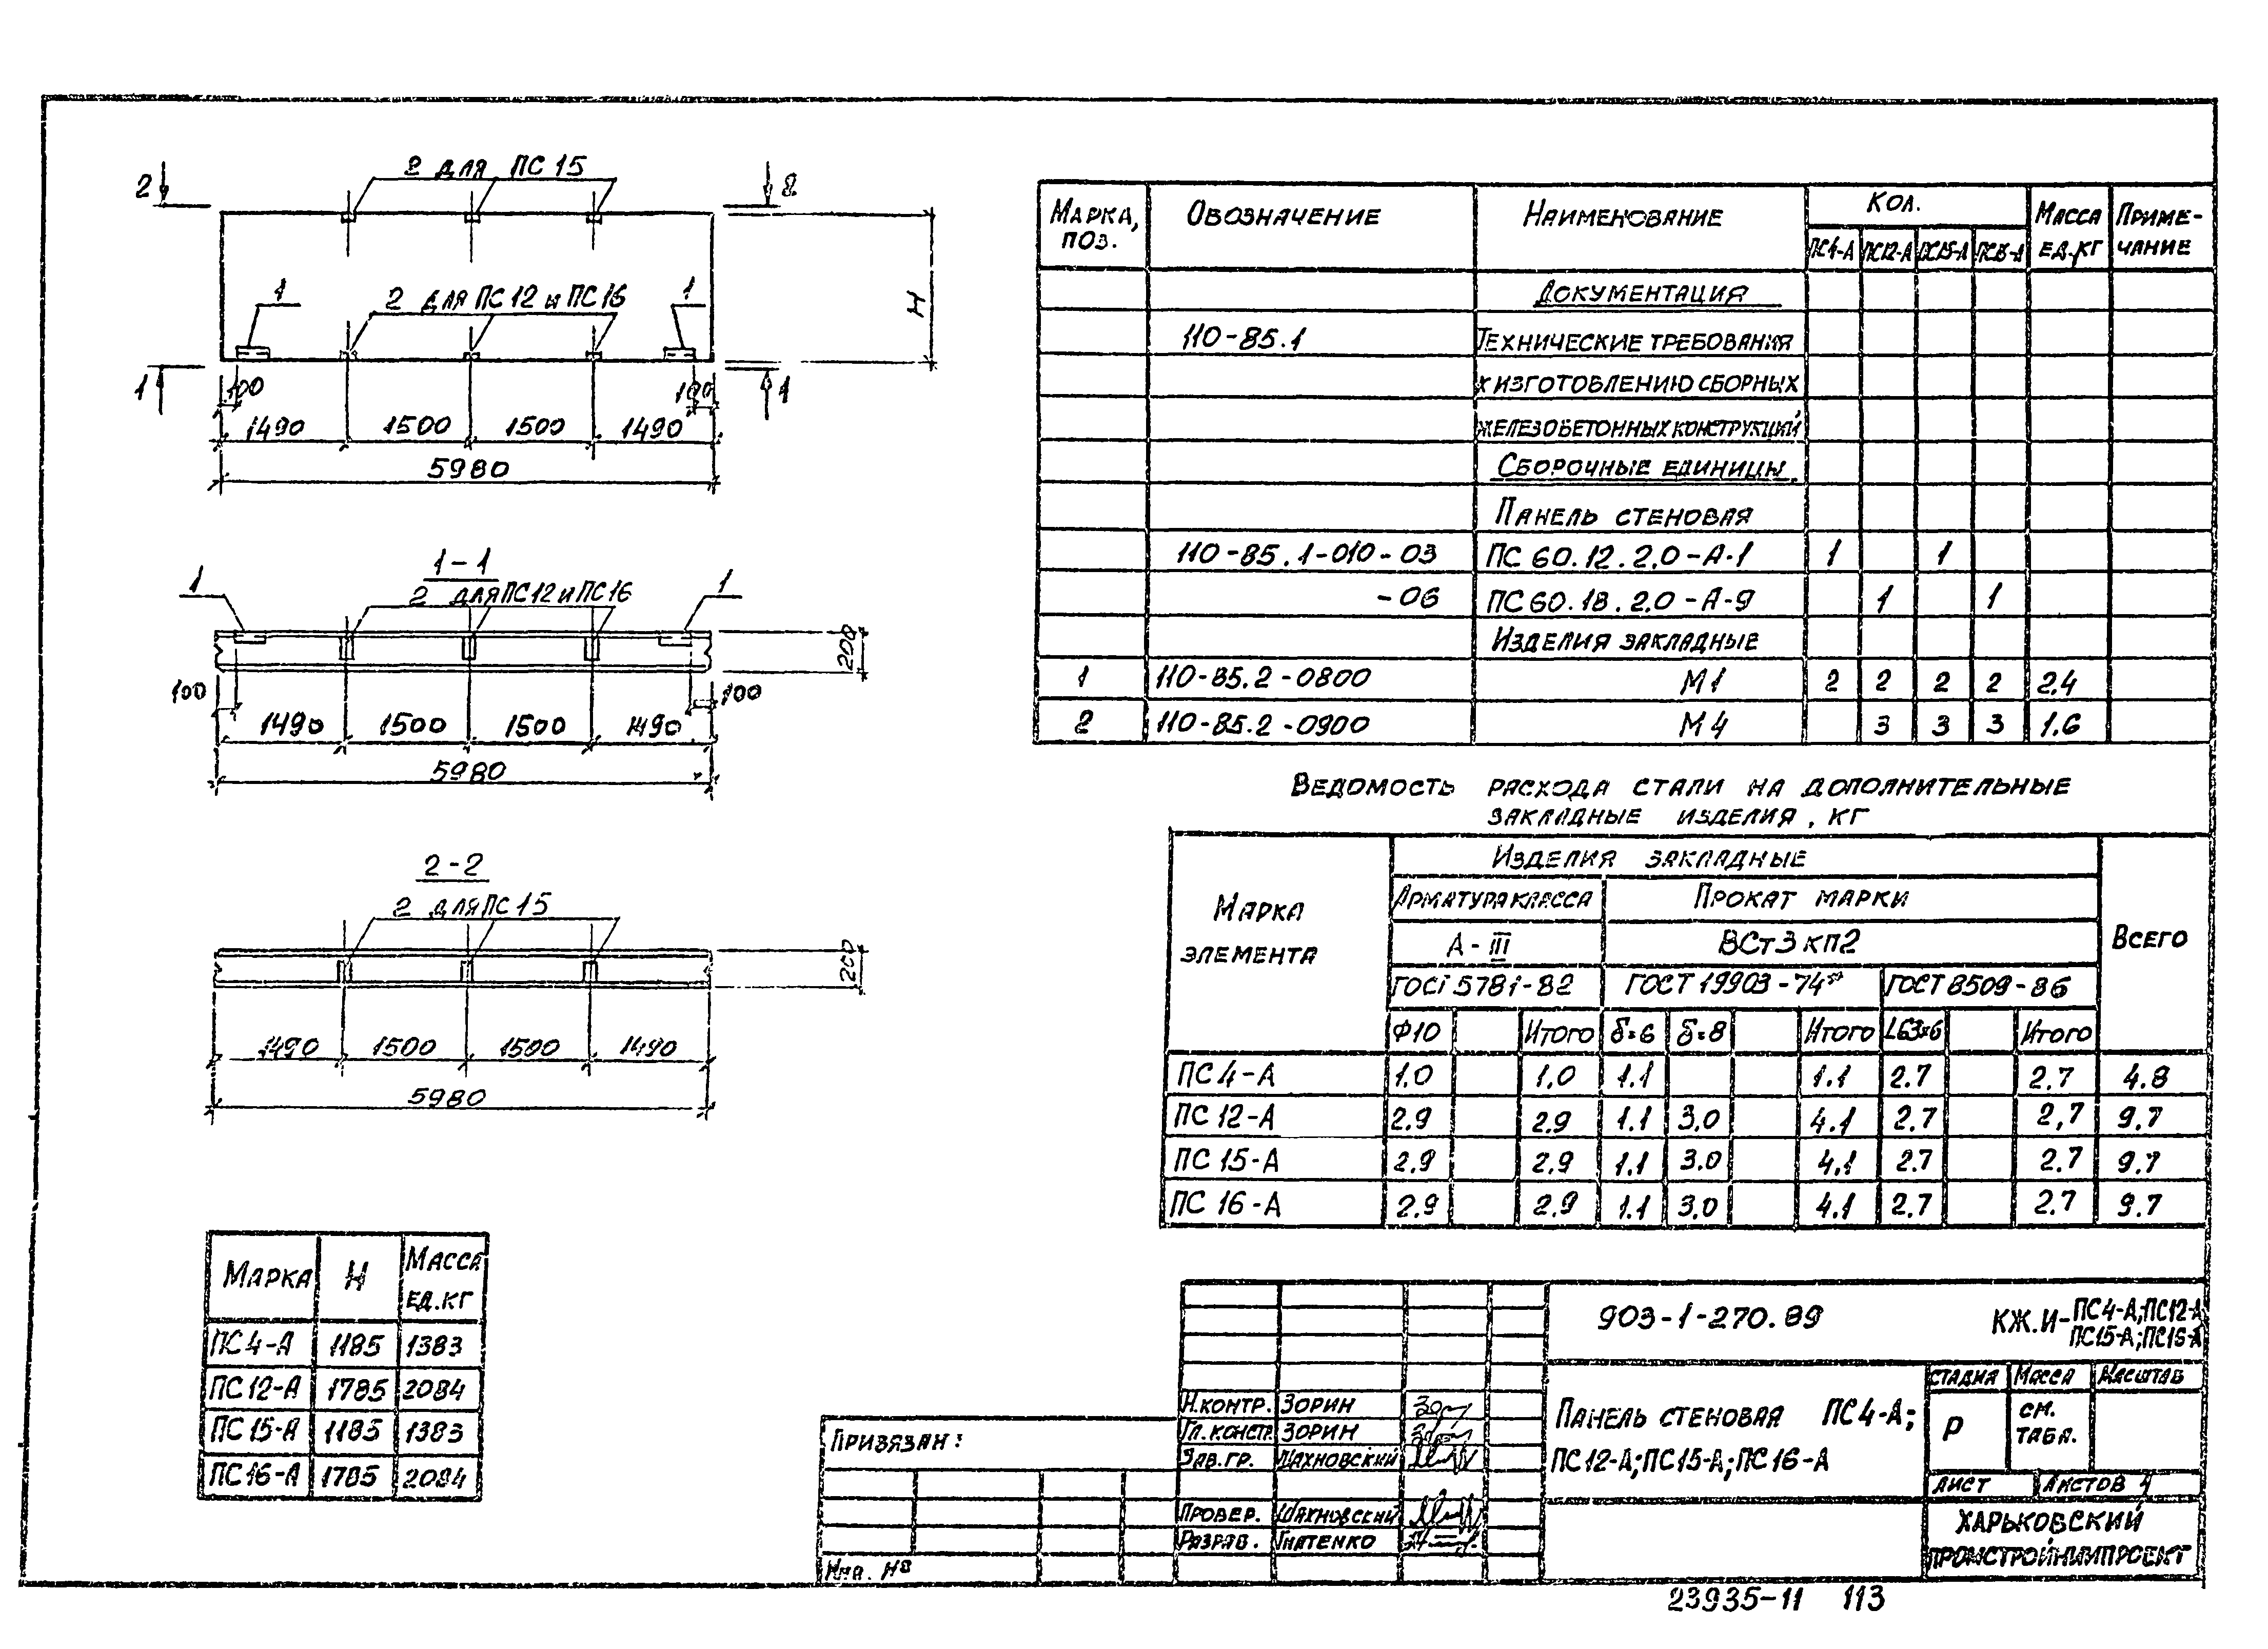 2 для ПС 15
2 2
1 2 для ПС 12 и ПС 16 1
H
1 100 100 1
1490 1500 1500 1490
5980
1-1
1 2 для ПС12 и ПС 16 1
200
100 100
1490 1500 1500 1490
5980
2-2
2 для ПС 15
200
1490 1500 1500 1490
5980
Марка H Масса ед.кг
ПС 4-А 1185 1383
ПС 12-А 1785 2084
ПС 15-А 1185 1383
ПС 16-А 1785 2084
Марка, поз. Обозначение Наименование Кол. Масса ед.кг Примечание
ПС4-А ПС12-А ПС15-А ПС16-А
Документация
110-85.1 Технические требования
к изготовлению сборных
железобетонных конструкций
Сборочные единицы
Панель стеновая
110-85.1-010-03 ПС 60.12.2.0-А-1 1 1
-06 ПС 60.18.2.0-А-9 1 1
Изделия закладные
1 110-85.2-0800 М1 2 2 2 2 2.4
2 110-85.2-0900 М4 3 3 3 1.6
Ведомость расхода стали на дополнительные
закладные изделия, кг
Марка элемента Изделия закладные Всего
Арматура класса Прокат марки
А-III ВСт3кп2
ГОСТ 5781-82 ГОСТ 19903-74* ГОСТ 8509-86
Ф10 Итого δ=6 δ=8 Итого L63×6 Итого
ПС 4-А 1.0 1.0 1.1 1.1 2.7 2.7 4.8
ПС 12-А 2.9 2.9 1.1 3.0 4.1 2.7 2,7 9.7
ПС 15-А 2.9 2.9 1.1 3.0 4.1 2.7 2.7 9.7
ПС 16-А 2.9 2.9 1.1 3.0 4.1 2.7 2.7 9.7
903-1-270.89 КЖ.И-ПС4-А;ПС12-А
ПС15-А;ПС16-А
Н.контр. Зорин
Гл.констр. Зорин
Зав.гр. Шахновский
Провер. Шахновский
Разраб. Гнатенко
Привязан:
Инв. №
Панель стеновая ПС 4-А;
ПС12-А;ПС15-А;ПС16-А
Стадия Масса Масштаб
Р См. табл.
Лист Листов 1
Харьковский
Промстройниипроект
23935-11 113